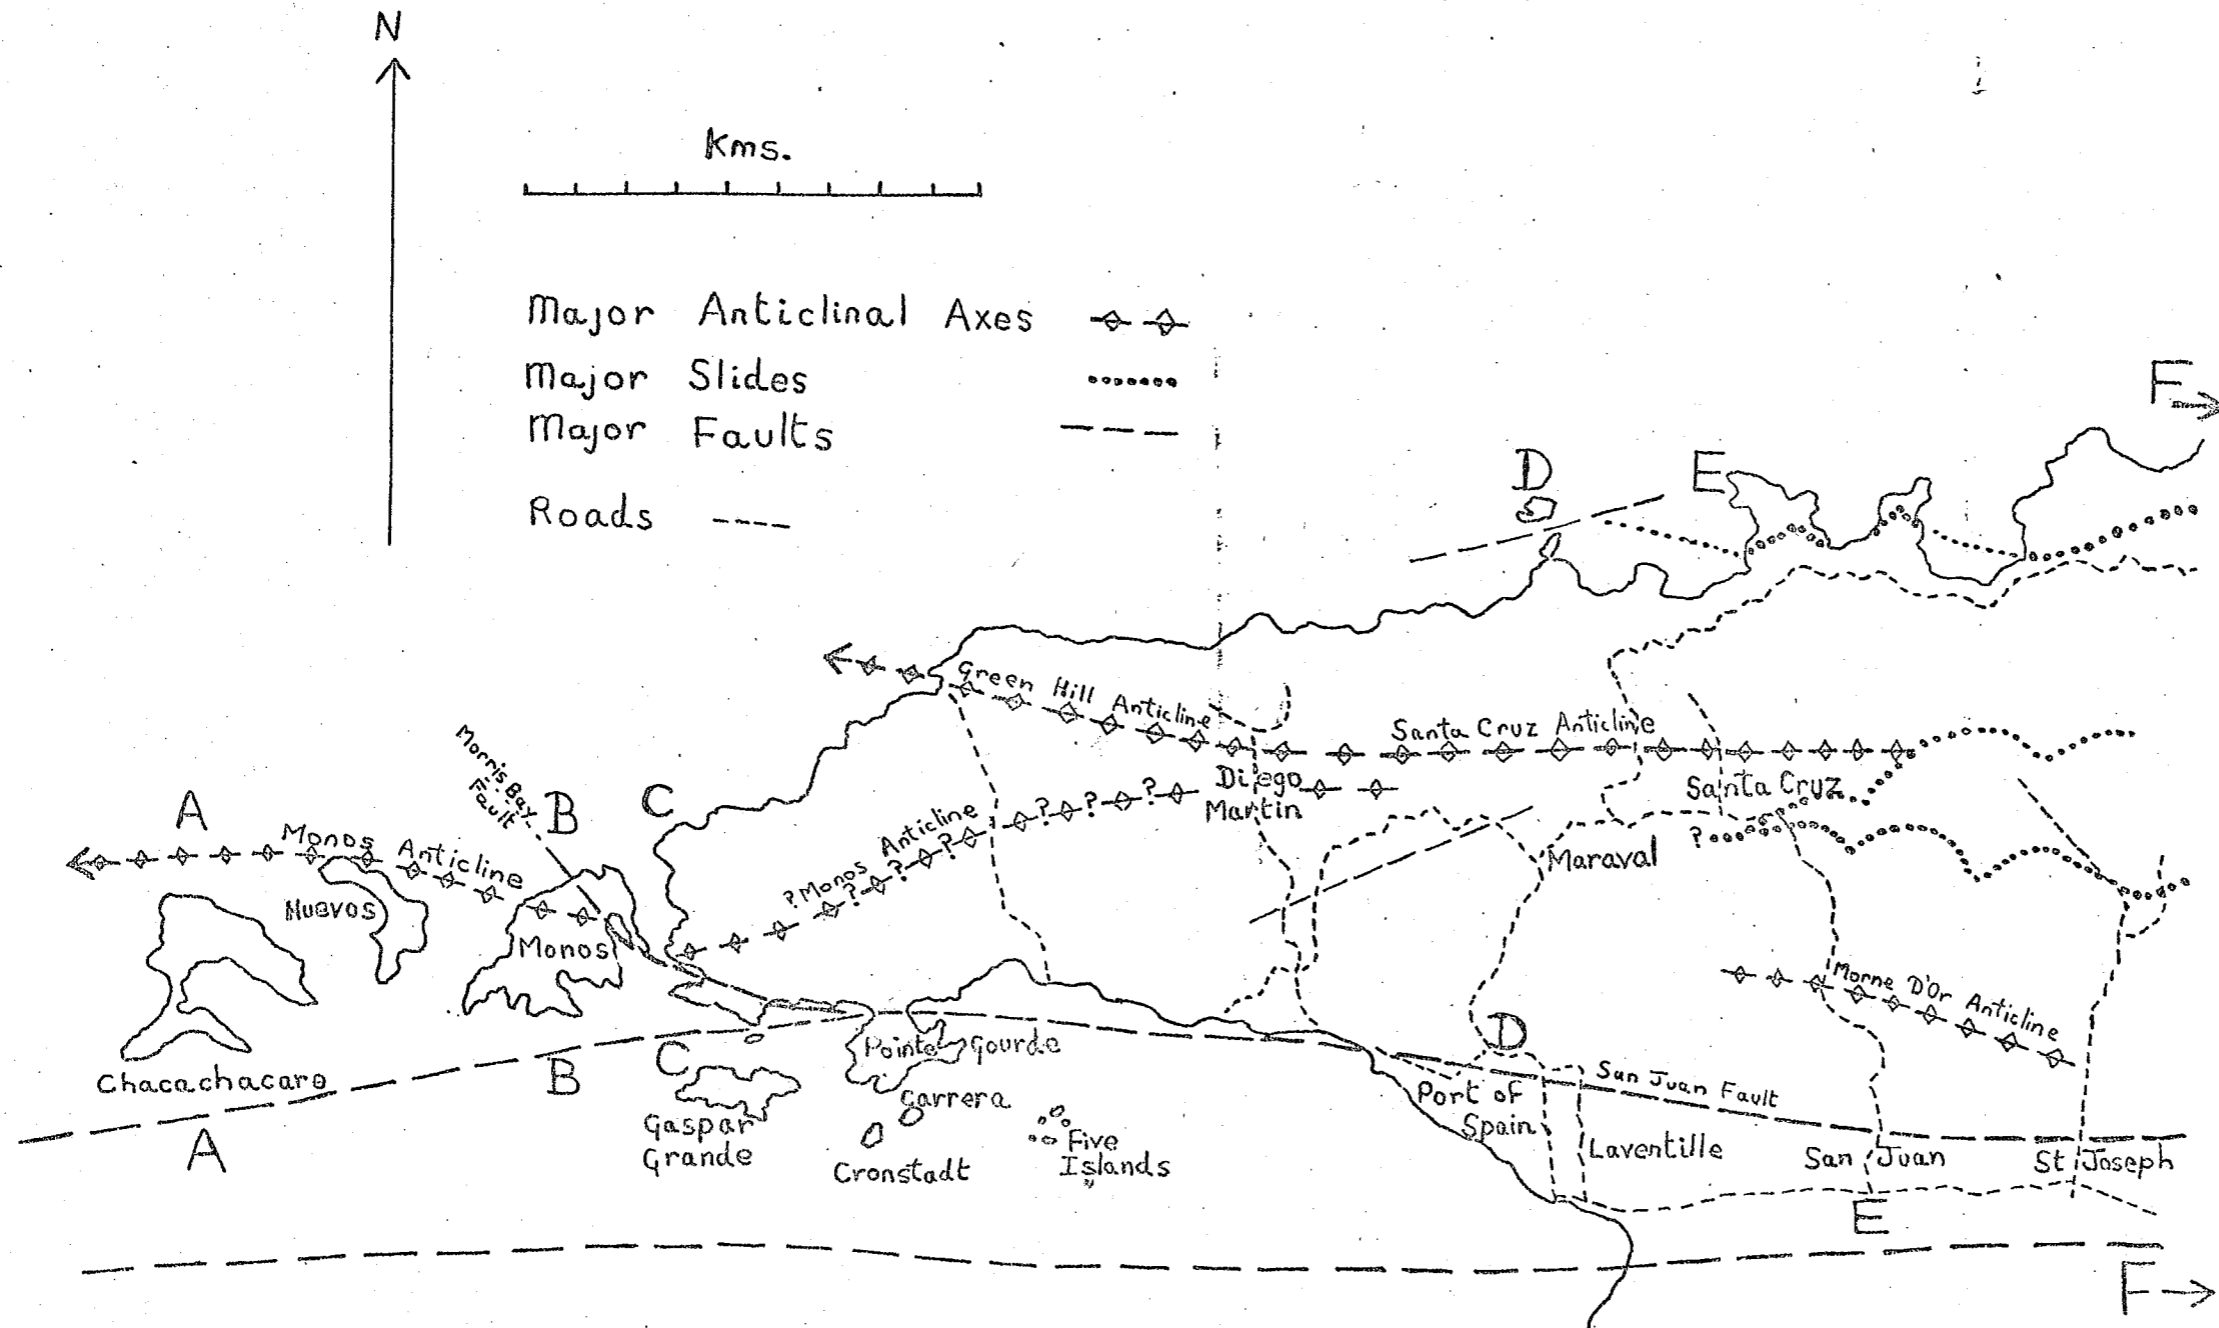 N
Kms.
Major Anticlinal Axes
Major Slides
Major Faults
Roads
F
D
E
Green Hill Anticline
Santa Cruz Anticline
Morris Bay
Fault
A
B
C
Monos Anticline
? Monos Anticline
? ? ? ? ? ? ?
Diego
Martin
Santa Cruz
?
Maraval
Huevos
Monos
Morne D'Or Anticline
Chacachacare
A
B
C
Pointe Gourde
D
San Juan Fault
Gaspar
Grande
Carrera
Cronstadt
Five
Islands
Port of
Spain
Laventille
San Juan
St Joseph
E
F